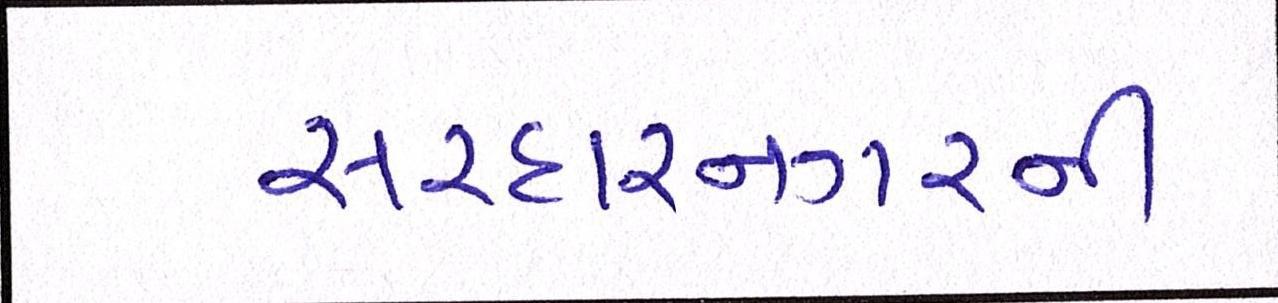 સરદારનગરની